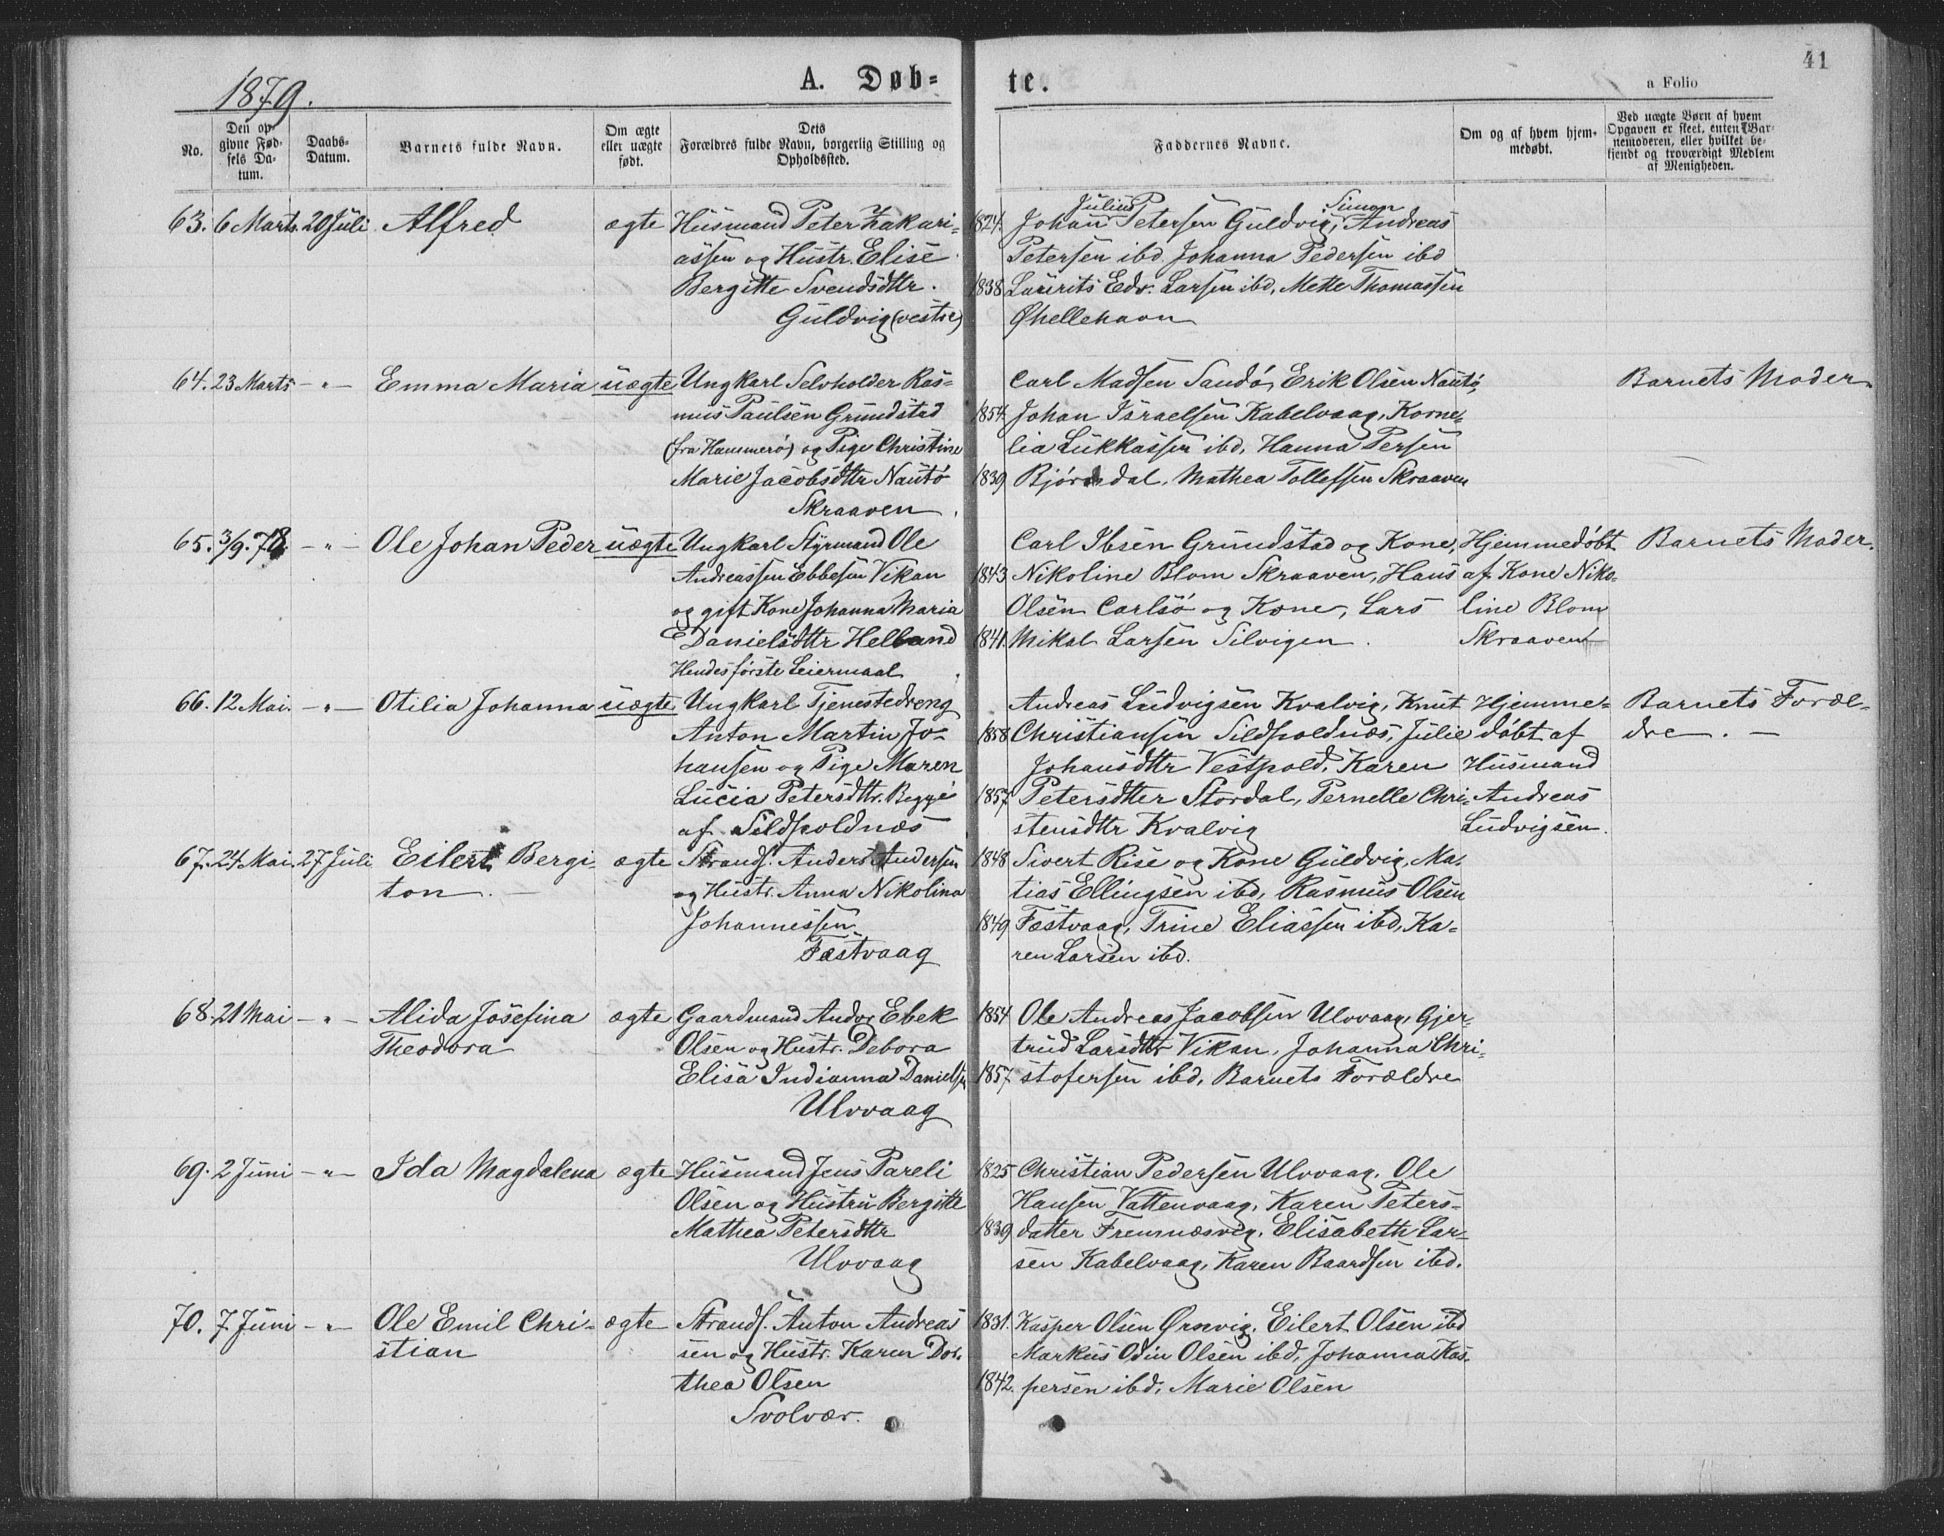 41
1879.
A. Døb-
te.
a Folio
No.
Den op-
givne Fød-
sels Da-
tum.
Daabs-
Datum.
Barnets fulde Navn.
Om ægte
eller uægte
født.
Dets
Forældres fulde Navn, borgerlig Stilling og
Opholdssted.
Faddernes Navne.
Om og af hvem hjem-
medøbt.
Ved uægte Børn af hvem
Opgaven er skeet, enten Bar-
nemoderen, eller hvilket be-
kjendt og troværdigt Medlem
af Menigheden.
63. 6 Marts 20 Juli Alfred ægte Husmand Peter Zakari-
assen og Hustr. Elise
Bergitte Svendsdttr.
Guldvig (vestre)
1824.
1838
Julius P Simon
Johan Petersen Guldvig, Andreas
Petersen ibd. Johanna Pedersen ibd
Laurits Edv. Larsen ibd, Mette Thomassen
Øhellehavn
64. 23 Marts - " - Emma Maria uægte Ungkarl Selvholder Ras-
mus Paulsen Grundstad
(fra Hammerø) og Pige Christine
Marie Jacobsdttr Nautø
Skraaven
1854
1839
Carl Madsen Sandø, Erik Olsen Nautø,
Johan Israelsen Kabelvaag, Korne-
lia Lukkassen ibd, Hanna Persen
Bjørndal, Mathea Tollefsen Skraaven
Barnets Moder
65. 3/9.78 - " - Ole Johan Peder uægte Ungkarl Styrmand Ole
Andreassen Ebbesen Vikan
og gift Kone Johanna Maria
E Danielsdttr Helland
Hendes første Leiermaal
1843
1841.
Carl Ibsen Grundstad og Kone,
Nikoline Blom Skraaven, Hans
Olsen Carlsø og Kone, Lars
Mikal Larsen Silvigen.
Hjemmedøbt
af Kone Niko-
line Blom
Skraaven
Barnets Moder.
66. 12 Mai. - " - Otilia Johanna uægte Ungkarl Tjenestedreng
Anton Martin Jo-
hansen og Pige Maren
Lucia Petersdttr. Begge
af Sildpoldnæs
1858
1857
Andreas Ludvigsen Kvalvig, Knut
Christiansen Sildpoldnæs, Julie
Johansdttr Vestpold, Karen
Petersdtter Stordal, Pernelle Chri-
stensdttr Kvalvig
Hjemme-
døbt af
Husmand
Andreas
Ludvigsen.
Barnets Foræl-
dre. -
67. 24 Mai 27 Juli Eilert Bergi-
ton. -
ægte Strands. Anders Andersen
og Hustr. Anna Nikolina
Johannessen
Fæstvaag
1848
1849
Sivert Rise og Kone Guldvig, Ma-
tias Ellingsen ibd, Rasmus Olsen
Fæstvaag, Trine Eliassen ibd, Ka-
ren Larsen ibd.
68. 21 Mai - " - Alida Josefina
Theodora
ægte Gaardmand Andor Ebek
Olsen og Hustr. Debora
Elisa Indianna Danielsen
Ulvvaag
1854
1857.
Ole Andreas Jacobsen Ulvvaag, Gjer-
trud Larsdttr Vikan, Johanna Chri-
stofersen ibd, Barnets Forældre
69. 2 Juni - " - Ida Magdalena ægte Husmand Jens Pareli
Olsen og Hustru Bergitte
Mathea Petersdttr
Ulvvaag
1825
1839
Christian Pedersen Ulvvaag, Ole
Hansen Vattenvaag, Karen Peters-
datter Fremnæsvig, Elisabeth Lar-
sen Kabelvaag, Karen Baardsen ibd.
70. 7 Juni - " - Ole Emil Chri-
stian
ægte Strands. Anton Andreas
sen og Hustr. Karen Dor-
thea Olsen
Svolvær.
1831.
1842.
Kasper Olsen Ørsvig, Eilert Olsen ibd
Markus Odin Olsen ibd, Johanna Kas-
persen ibd, Marie Olsen